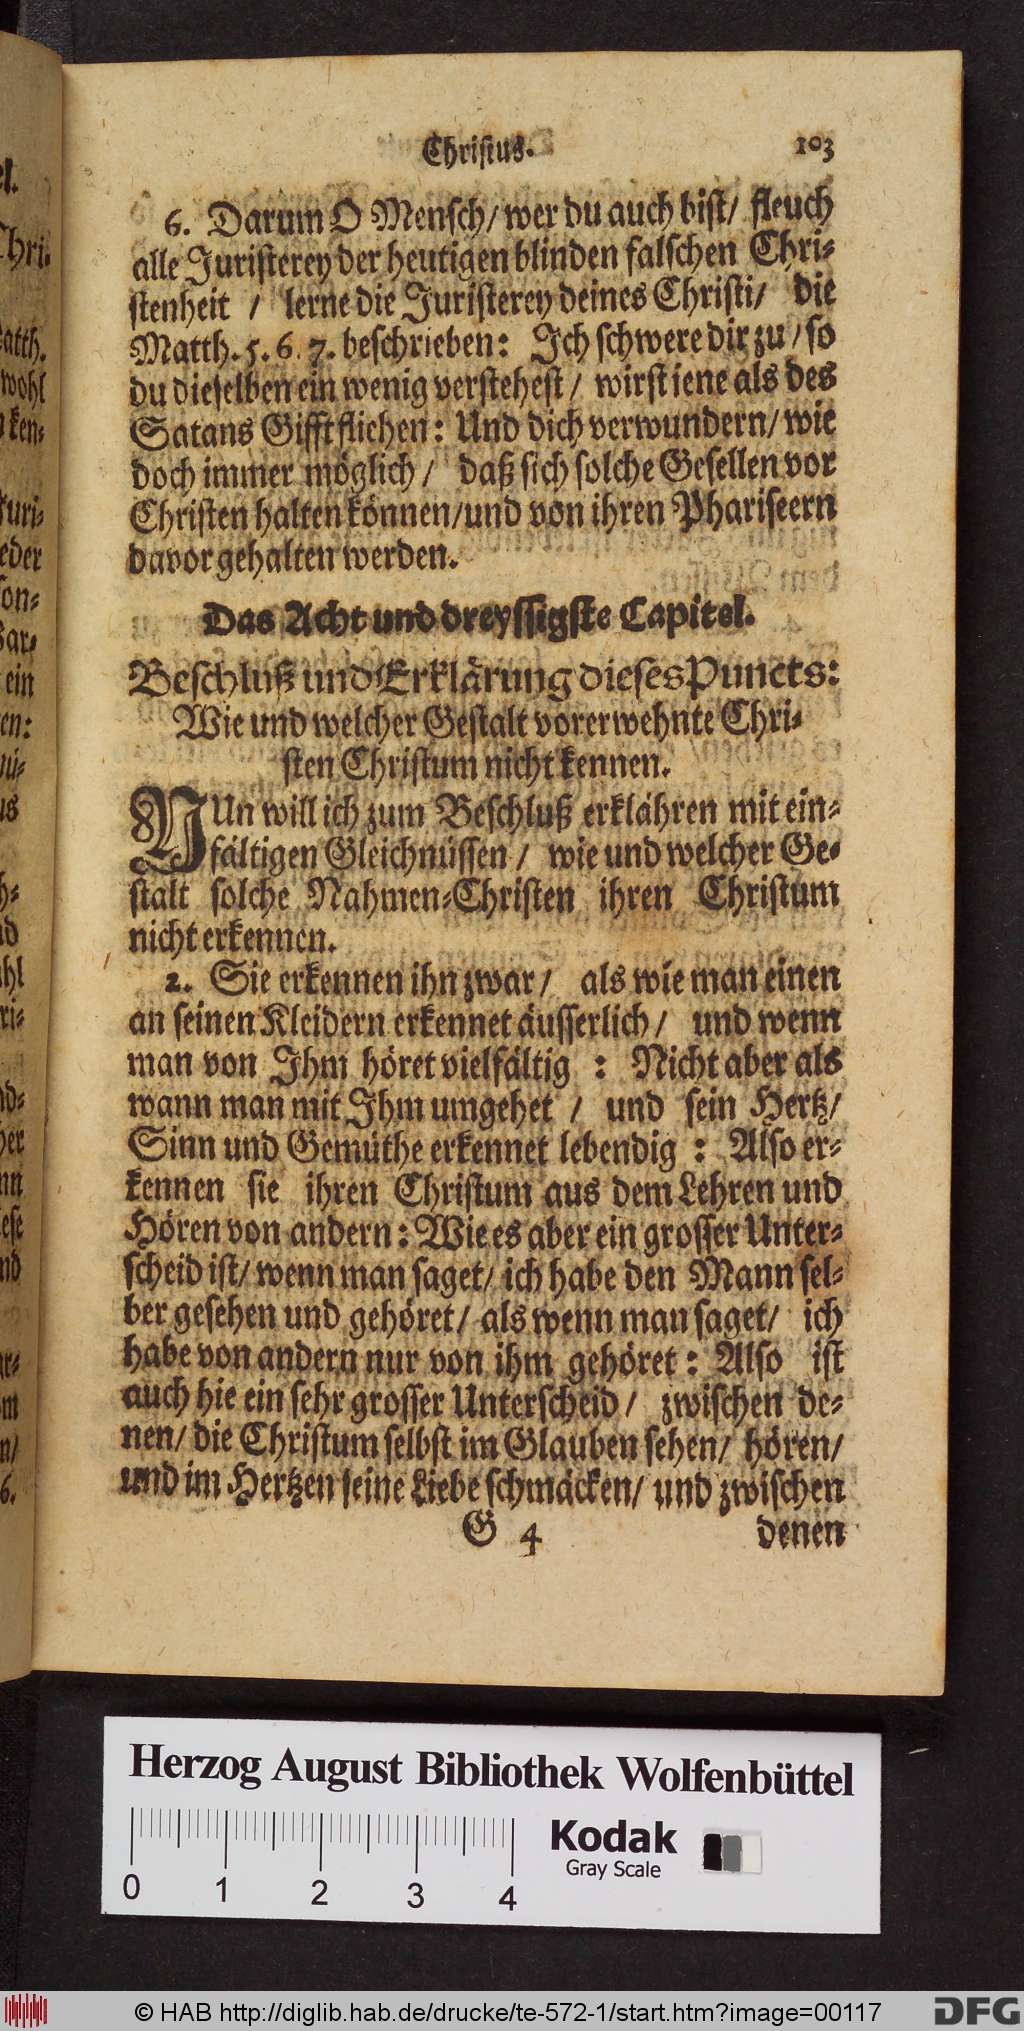 Christus. 103
6. Darum O Mensch/ wer du auch bist/ fleuch
alle Juristerey der heutigen blinden falschen Chri-
stenheit / lerne die Juristerey deines Christi/ die
Matth. 5. 6. 7. beschrieben: Ich schwere dir zu / so
du dieselben ein wenig verstehest / wirst jene als des
Satans Gifft fliehen: Und dich verwundern/ wie
doch immer möglich / daß sich solche Gesellen vor
Christen halten können/und von ihren Phariseern
davor gehalten werden.
Das Acht und dreyssigste Capitel.
Beschluß und Erklärung dieses Puncts:
Wie und welcher Gestalt vorerwehnte Chri-
sten Christum nicht kennen.
NUn will ich zum Beschluß erklähren mit ein-
fältigen Gleichnüssen / wie und welcher Ge-
stalt solche Nahmen-Christen ihren Christum
nicht erkennen.
2. Sie erkennen ihn zwar / als wie man einen
an seinen Kleidern erkennet äusserlich / und wenn
man von Ihm höret vielfältig : Nicht aber als
wann man mit Ihm umgehet / und sein Hertz/
Sinn und Gemüthe erkennet lebendig : Also er-
kennen sie ihren Christum aus dem Lehren und
Hören von andern: Wie es aber ein grosser Unter-
scheid ist/ wenn man saget/ ich habe den Mann sel-
ber gesehen und gehöret/ als wenn man saget/ ich
habe von andern nur von ihm gehöret: Also ist
auch hie ein sehr grosser Unterscheid / zwischen de-
nen/ die Christum selbst im Glauben sehen/ hören/
und im Hertzen seine Liebe schmäcken/ und zwischen
G 4 denen
Herzog August Bibliothek Wolfenbüttel
Kodak
Gray Scale
0 1 2 3 4
© HAB http://diglib.hab.de/drucke/te-572-1/start.htm?image=00117
DFG